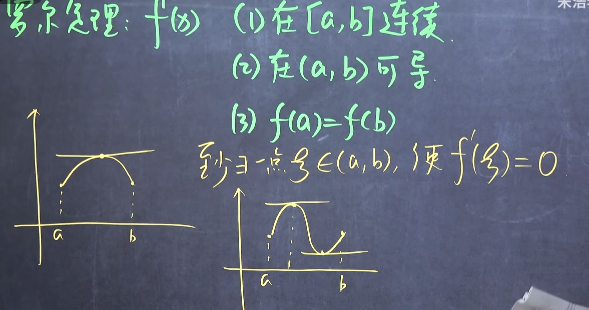 罗尔定理: f(x) (1) 在[a,b]连续.
(2) 在(a,b)可导
(3) f(a)=f(b)
至少∃一点ξ∈(a,b), 使f′(ξ)=0.
a b
a b